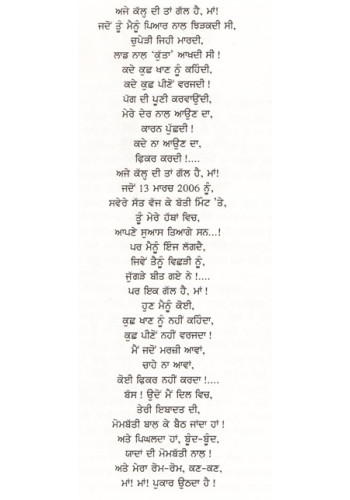 ਅਜੇ ਕੱਲ੍ਹ ਦੀ ਤਾਂ ਗੱਲ ਹੈ, ਮਾਂ!
ਜਦੋਂ ਤੂੰ ਮੈਨੂੰ ਪਿਆਰ ਨਾਲ ਝਿੜਕਦੀ ਸੀ,
ਚੁਪੇੜੀ ਜਿਹੀ ਮਾਰਦੀ,
ਲਾਡ ਨਾਲ 'ਕੁੱਤਾ' ਆਖਦੀ ਸੀ !
ਕਦੇ ਕੁਛ ਖਾਣ ਨੂੰ ਕਹਿੰਦੀ,
ਕਦੇ ਕੁਛ ਪੀਣੋਂ ਵਰਜਦੀ !
ਪੱਗ ਦੀ ਪੂਣੀ ਕਰਵਾਉਂਦੀ,
ਮੇਰੇ ਦੇਰ ਨਾਲ ਆਉਣ ਦਾ,
ਕਾਰਨ ਪੁੱਛਦੀ !
ਕਦੇ ਨਾ ਆਉਣ ਦਾ,
ਫ਼ਿਕਰ ਕਰਦੀ !....
ਅਜੇ ਕੱਲ੍ਹ ਦੀ ਤਾਂ ਗੱਲ ਹੈ, ਮਾਂ !
ਜਦੋਂ 13 ਮਾਰਚ 2006 ਨੂੰ,
ਸਵੇਰੇ ਸੱਤ ਵੱਜ ਕੇ ਬੱਤੀ ਮਿੰਟ 'ਤੇ,
ਤੂੰ ਮੇਰੇ ਹੱਥਾਂ ਵਿਚ,
ਆਪਣੇ ਸੁਆਸ ਤਿਆਗੇ ਸਨ...!
ਪਰ ਮੈਨੂੰ ਇੰਜ ਲੱਗਦੈ,
ਜਿਵੇਂ ਤੈਨੂੰ ਵਿਛੜੀ ਨੂੰ,
ਜੁੱਗੜੇ ਬੀਤ ਗਏ ਨੇ !....
ਪਰ ਇਕ ਗੱਲ ਹੈ, ਮਾਂ !
ਹੁਣ ਮੈਨੂੰ ਕੋਈ,
ਕੁਛ ਖਾਣ ਨੂੰ ਨਹੀਂ ਕਹਿੰਦਾ,
ਕੁਛ ਪੀਣੋਂ ਨਹੀਂ ਵਰਜਦਾ !
ਮੈਂ ਜਦੋਂ ਮਰਜ਼ੀ ਆਵਾਂ,
ਚਾਹੇ ਨਾ ਆਵਾਂ,
ਕੋਈ ਫ਼ਿਕਰ ਨਹੀਂ ਕਰਦਾ !....
ਬੱਸ ! ਉਦੋਂ ਮੈਂ ਦਿਲ ਵਿਚ,
ਤੇਰੀ ਇਬਾਦਤ ਦੀ,
ਮੋਮਬੱਤੀ ਬਾਲ ਕੇ ਬੈਠ ਜਾਂਦਾ ਹਾਂ !
ਅਤੇ ਪਿਘਲਦਾ ਹਾਂ, ਬੂੰਦ-ਬੂੰਦ,
ਯਾਦਾਂ ਦੀ ਮੋਮਬੱਤੀ ਨਾਲ !
ਅਤੇ ਮੇਰਾ ਰੋਮ-ਰੋਮ, ਕਣ-ਕਣ,
ਮਾਂ! ਮਾਂ! ਪੁਕਾਰ ਉਠਦਾ ਹੈ !